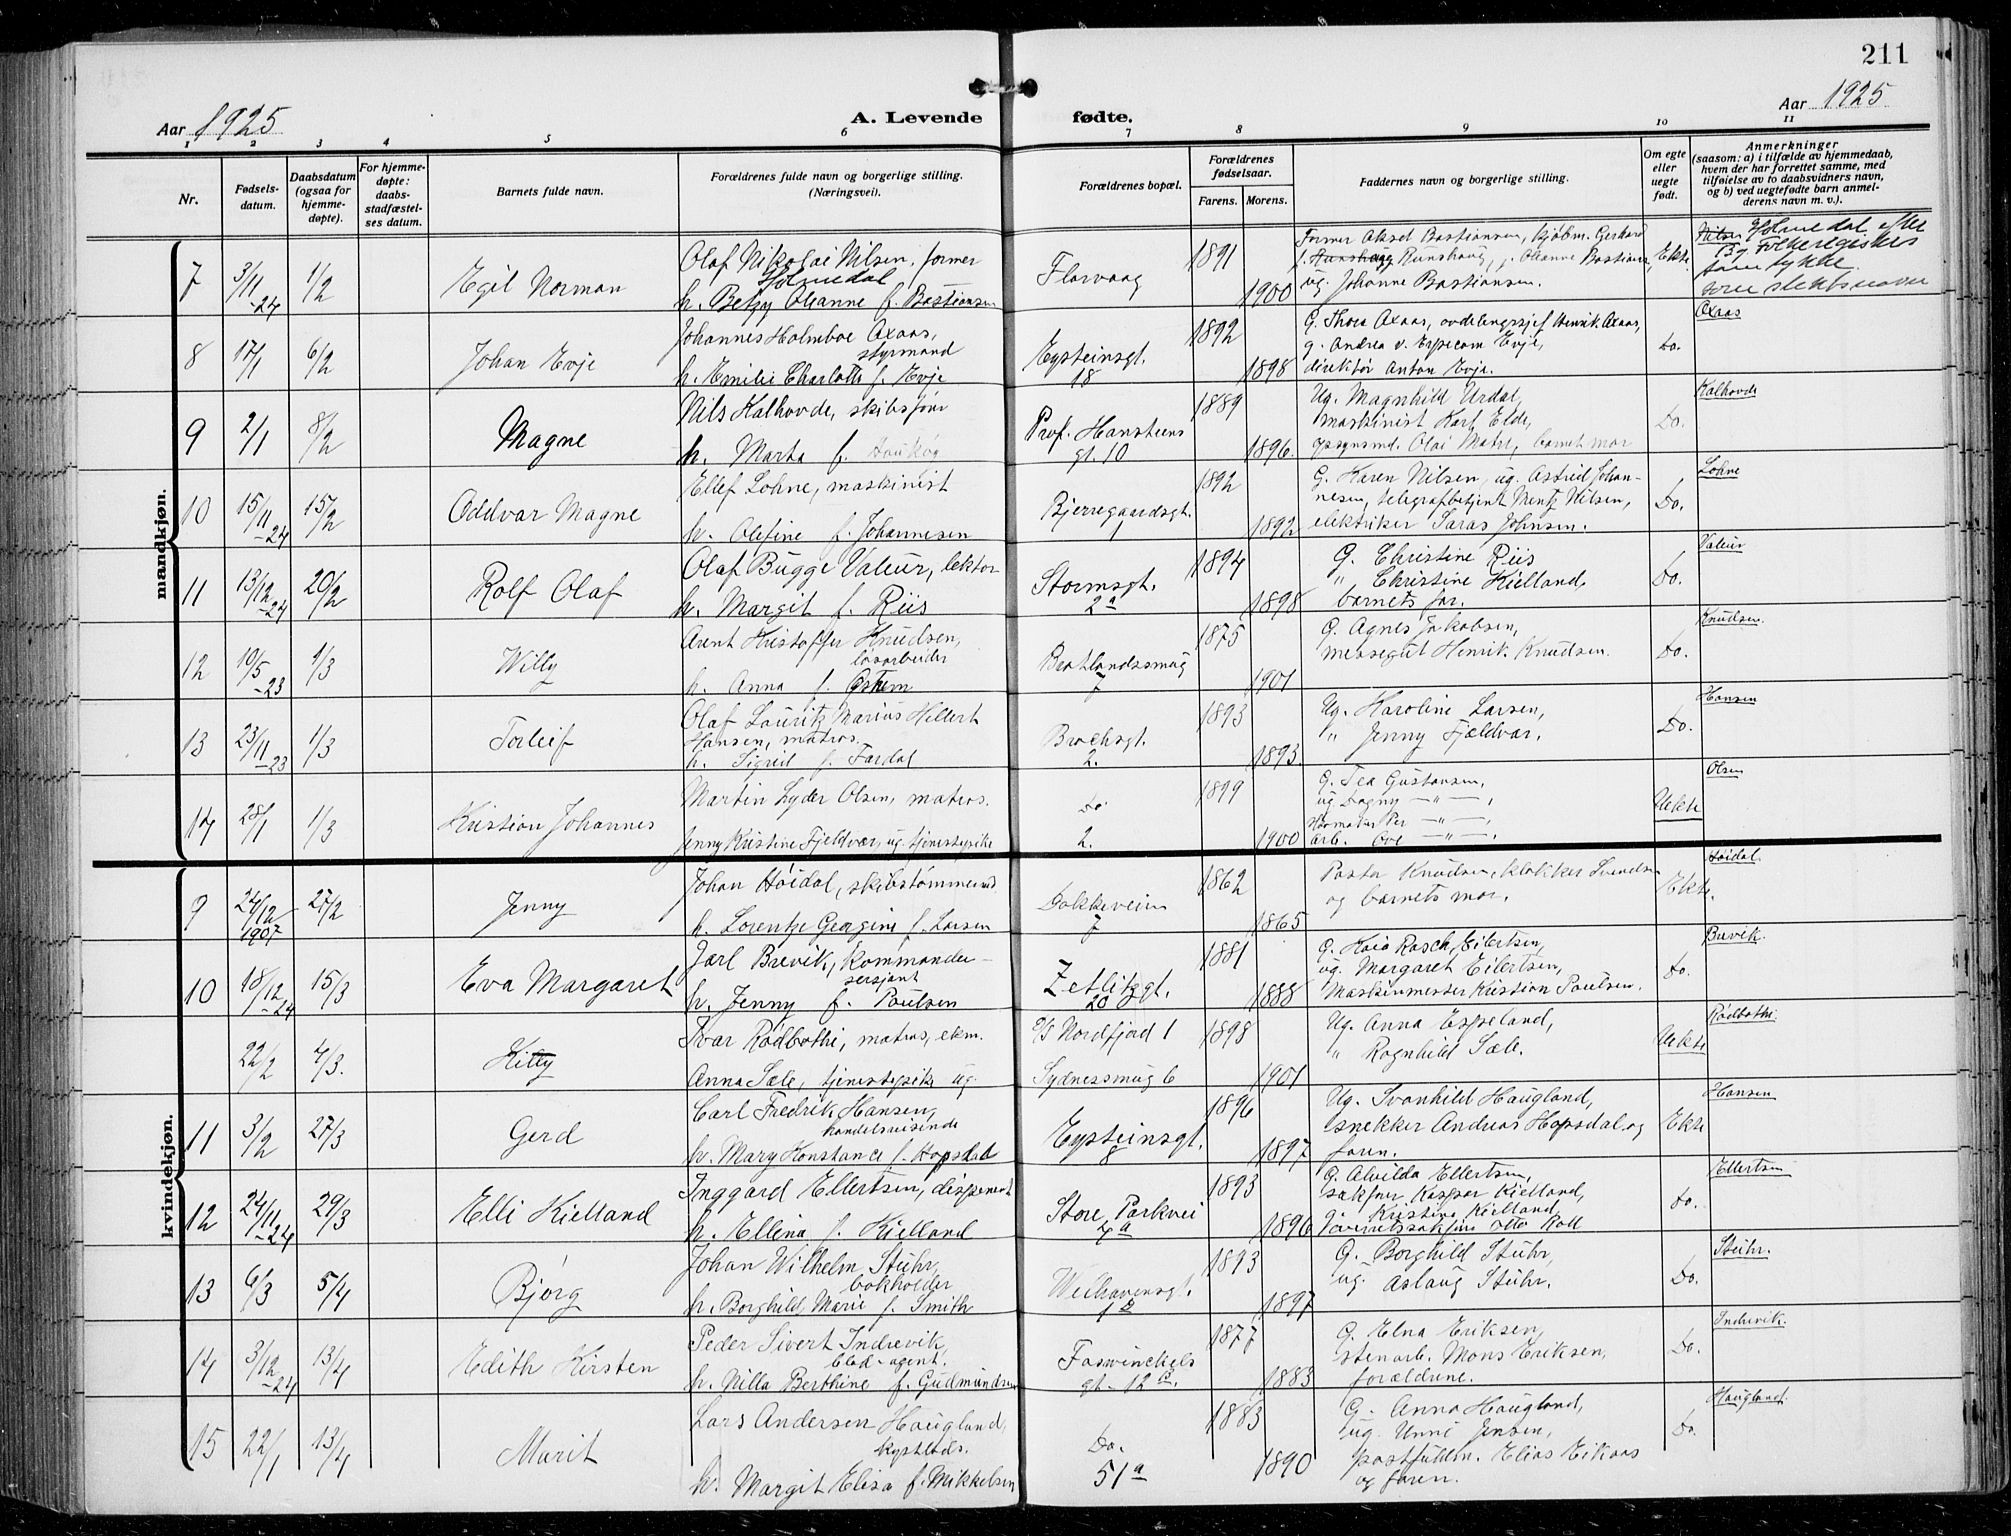 211
Aar 1925
A. Levende fødte.
Aar 1925
1 2 3 4 5 6 7 8 9 10 11
Nr.
Fødsels-datum.
Daabsdatum (ogsaa for hjemme-døpte).
For hjemme-døpte: daabs-stadfæstel-ses datum.
Barnets fulde navn.
Forældrenes fulde navn og borgerlige stilling. (Næringsvei).
Forældrenes bopæl.
Forældrenes fødselsaar.
Farens. Morens.
Faddernes navn og borgerlige stilling.
Om egte eller uegte født.
Anmerkninger
(saasom: a) i tilfælde av hjemmedaab,
hvem der har forrettet samme, med
tilføielse av to daabsvidners navn,
og b) ved uegtefødte barn anmel-
derens navn m. v.).
mandkjøn.
7 3/11-24 1/2 Egil Norman
Olaf Nikolai Nilsen, former
Holmedal
h. Betzy Olianne f. Bastiansen
Florvaag 1891 1900
Former Aksel Bastiansen, kjøbm. Gerhard
Kunshaug, Olianne Bastiansen,
ug. Johanne Bastiansen.
Ekte.
Nilsen Holmedal efter
Folkeregisters
samtykke
som slektsnavn
8 17/1 6/2 Johan Evje
Johannes Holmboe Axaas,
styrmand
h. Emilie Charlotte f. Evje
Eysteinsgt. 18 1892 1898
G. Thora Axaas, avdelingssjef Henrik Axaas,
g. Andrea v. Erpecom Evje,
direktør Anton Evje.
Do. Axaas
9 2/1 8/2 Magne
Nils Kalhovde, skibsfører
h. Marta f.
Prof. Hansteens gt. 10 1889 1896.
Ug. Magnhild Urdal,
maskinist Karl Elde,
opsynsmd. Olai Matre, barnets mor
Do. Kalhovde
10 15/11-24 15/2 Oddvar Magne
Ellef Lohne, maskinist
h. Olefine f. Johannesen
Bjerregaardsgt. 1 1892 1892
G. Karen Nilsen, ug. Astrid Johan-
nesen, telegrafbetjent Mentz Nilsen,
elektriker Saras Johnsen.
Do. Lohne
11 13/12-24 20/2 Rolf Olaf
Olaf Bugge Valeur, lektor
h. Margit f. Riis
Stormsgt. 2a 1894 1898
G. Christine Riis
" Christine Kielland,
barnets far.
Do. Valeur
12 10/5-23 1/3 Willy
Arent Kristoffer Knudsen,
løsarbeider
h. Anna f.
Bratlandssmug 7 1875 1901
G. Agnes Jakobsen,
messegut Henrik Knudsen.
Do. Knudsen.
13 23/11-23 1/3 Torleif
Olaf Lauritz Marius Hillert
Hansen, matros.
h. Sigrid f. Fardal
Brochsgt. 2. 1893 1893.
Ug. Karoline Larsen,
" Jenny Fjeldvær.
Do. Hansen
14 28/1 1/3 Kristian Johannes
Martin Lyder Olsen, matros.
Jenny Kristine Fjeldvær, ug. tjenestepike
Do. 2. 1899 1900
G. Tea Gustavsen,
ug. Dagny — " — ,
Per — " — ,
arb. Ove — " — .
Uekte Olsen
kvindekjøn.
9 24/12 1907 27/2 Jenny
Johan Høidal, skibstømmermd.
h. Lorentze Georgine f. Larsen
Dokkeveien 7 1862 1865
Pastor Knudsen, klokker Svendsen
og barnets mor.
Ekte. Høidal.
10 18/12-24 15/3 Eva Margaret
Jarl Brevik, kommander-
sersjant
h. Jenny f. Poulsen
Zetlitzgt. 20 1881 1888
G. Kaia Rasch Eilertsen,
ug. Margaret Eilertsen,
Maskinmester Kristian Poulsen.
Do. Brevik.
22/2 4/3. Kitty
Ivar Rødbothi, matros, ekm.
Anna Sæle, tjenestepike ug.
D/S Nordfjord 1 1898
Sydnessmug 6 1901
Ug. Anna Espeland,
" Ragnhild Sæle.
Uekte Rødbothi.
11 3/2 27/3 Gerd
Carl Fredrik Hansen,
handelsreisende
h. Mary Konstance f. Hopsdal
Eysteinsgt. 8 1896 1897
Ug. Svanhild Haugland,
snekker Andreas Hopsdal og
faren.
Ekte Hansen
12 24/11-24 29/3 Elli Kielland
Inggard Ellertsen, disponent
h. Ellina f. Kielland
Store Parkvei 7a 1893 1896
G. Alvilda Ellertsen,
sakfører Kaspar Kielland,
g. Kristine Kielland,
overretssakfører Otto Roll
Do. Ellertsen
13 6/3 5/4 Bjørg
Johan Wilhelm Stuhr,
bokholder
h. Borghild Marie f. Smith
Welhavensgt. 1893 1897
G. Borghild Stuhr,
ug. Aslaug Stuhr.
Do. Stuhr.
14 3/12-24 13/4 Edith Kirsten
Peder Sivert Indrevik,
blad-agent.
h. Nilla Berthine f. Gudmundsen
Foswinckels gt. 12 1877 1883
G. Elna Eriksen,
stenarb. Mons Eriksen,
forældrene.
Do. Indrevik.
15 22/1 13/4 Marit
Lars Andersen Haugland,
kystlods.
h. Margit Elisa f. Mikkelsen
Do. 51a 1883 1890
G. Anna Haugland,
ug. Unni Jensen,
postfuldm. Elias Eikaas
og faren.
Do. Haugland.